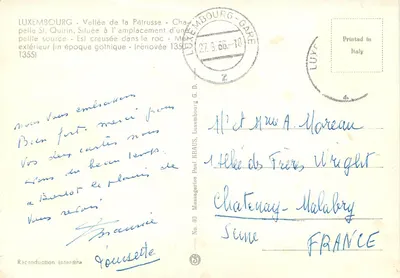 LUXEMBOURG - Vallée de la Pétrusse - Cha-
pelle St. Quirin, Située à l'emplacement d'une
petite source - Est creusée dans le roc - Mur
extérieur (in époque gothique - (rénovée 1350-
1355)
LUXEMBOURG-GARE
27.9.66-18
z
LUXE
Printed in
Italy
Nous vous embrassons
Bien fort, merci pour
vos des cartes nous
avons eu beau temps.
a Bientôt le plaisir de
vous revoir
Yousette
Mr et Mme A. Moreau
1 Allée des Frères Wright
Chatenay-Malabry
Seine
FRANCE
No. 80 Messageries Paul KRAUS, Luxembourg G. D.
Reproduction interdite